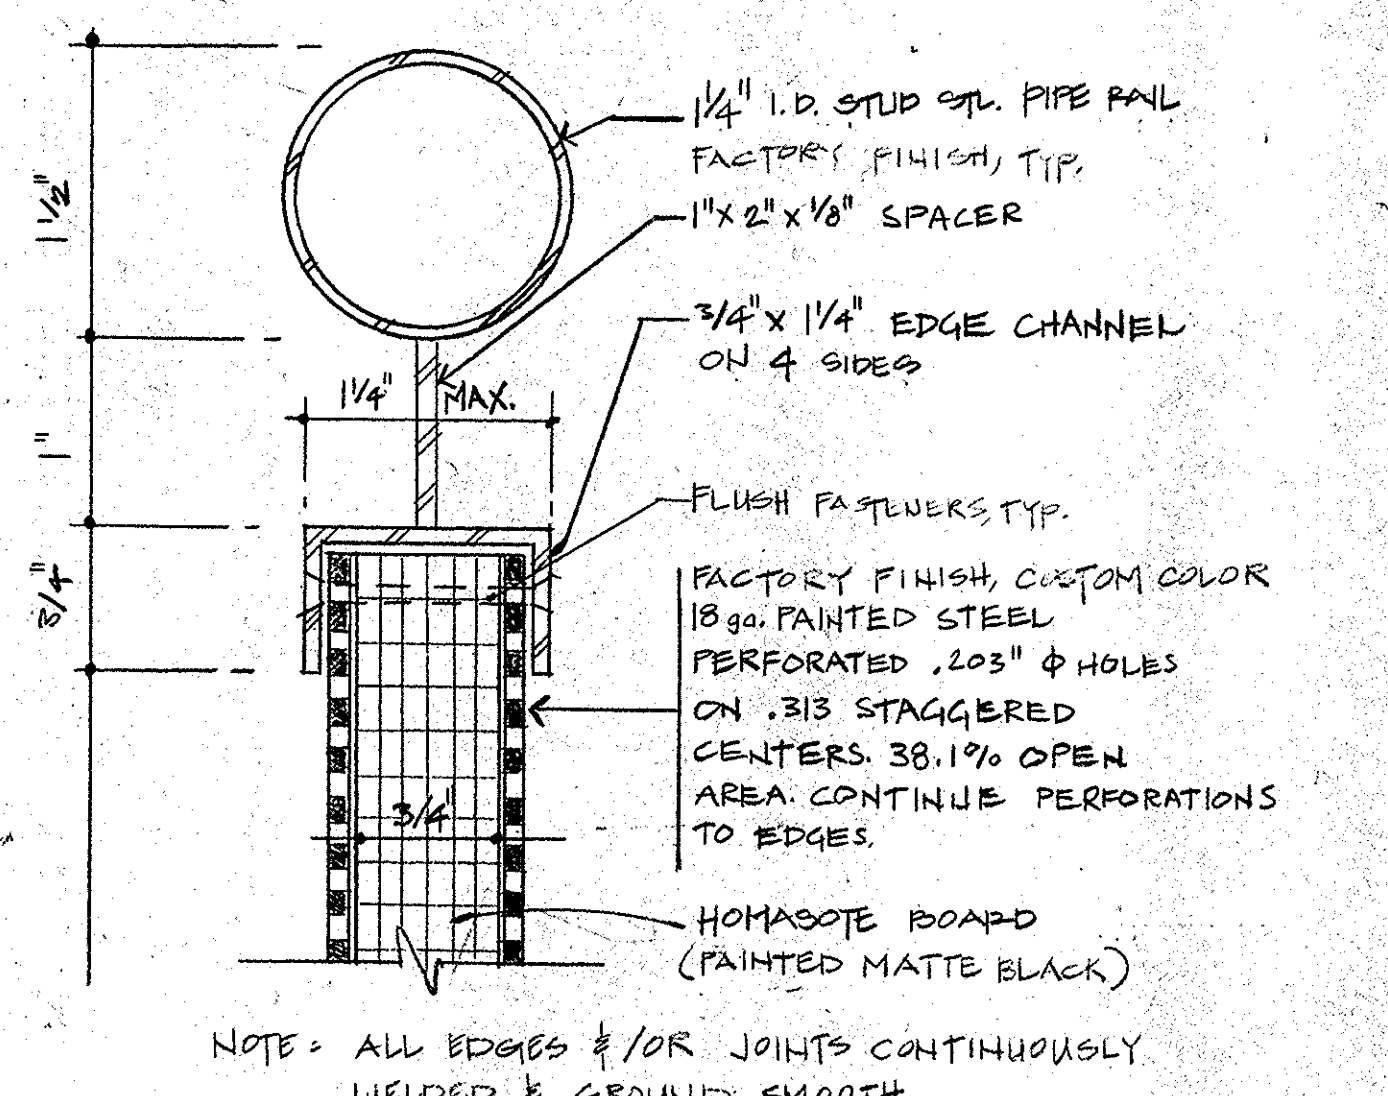 1 1/4" I.D. STUD STL. PIPE RAIL
FACTORY FINISH, TYP.
1" X 2" X 1/8" SPACER
3/4" X 1 1/4" EDGE CHANNEL
ON 4 SIDES
1 1/4" MAX.
FLUSH FASTENERS, TYP.
FACTORY FINISH, CUSTOM COLOR
18 ga. PAINTED STEEL
PERFORATED .203" Φ HOLES
ON .313 STAGGERED
CENTERS. 38.1% OPEN
AREA. CONTINUE PERFORATIONS
TO EDGES.
HOMASOTE BOARD
(PAINTED MATTE BLACK)
1 1/2"
1"
3/4"
3/4"
NOTE: ALL EDGES & /OR JOINTS CONTINUOUSLY
WELDED & GROUND SMOOTH